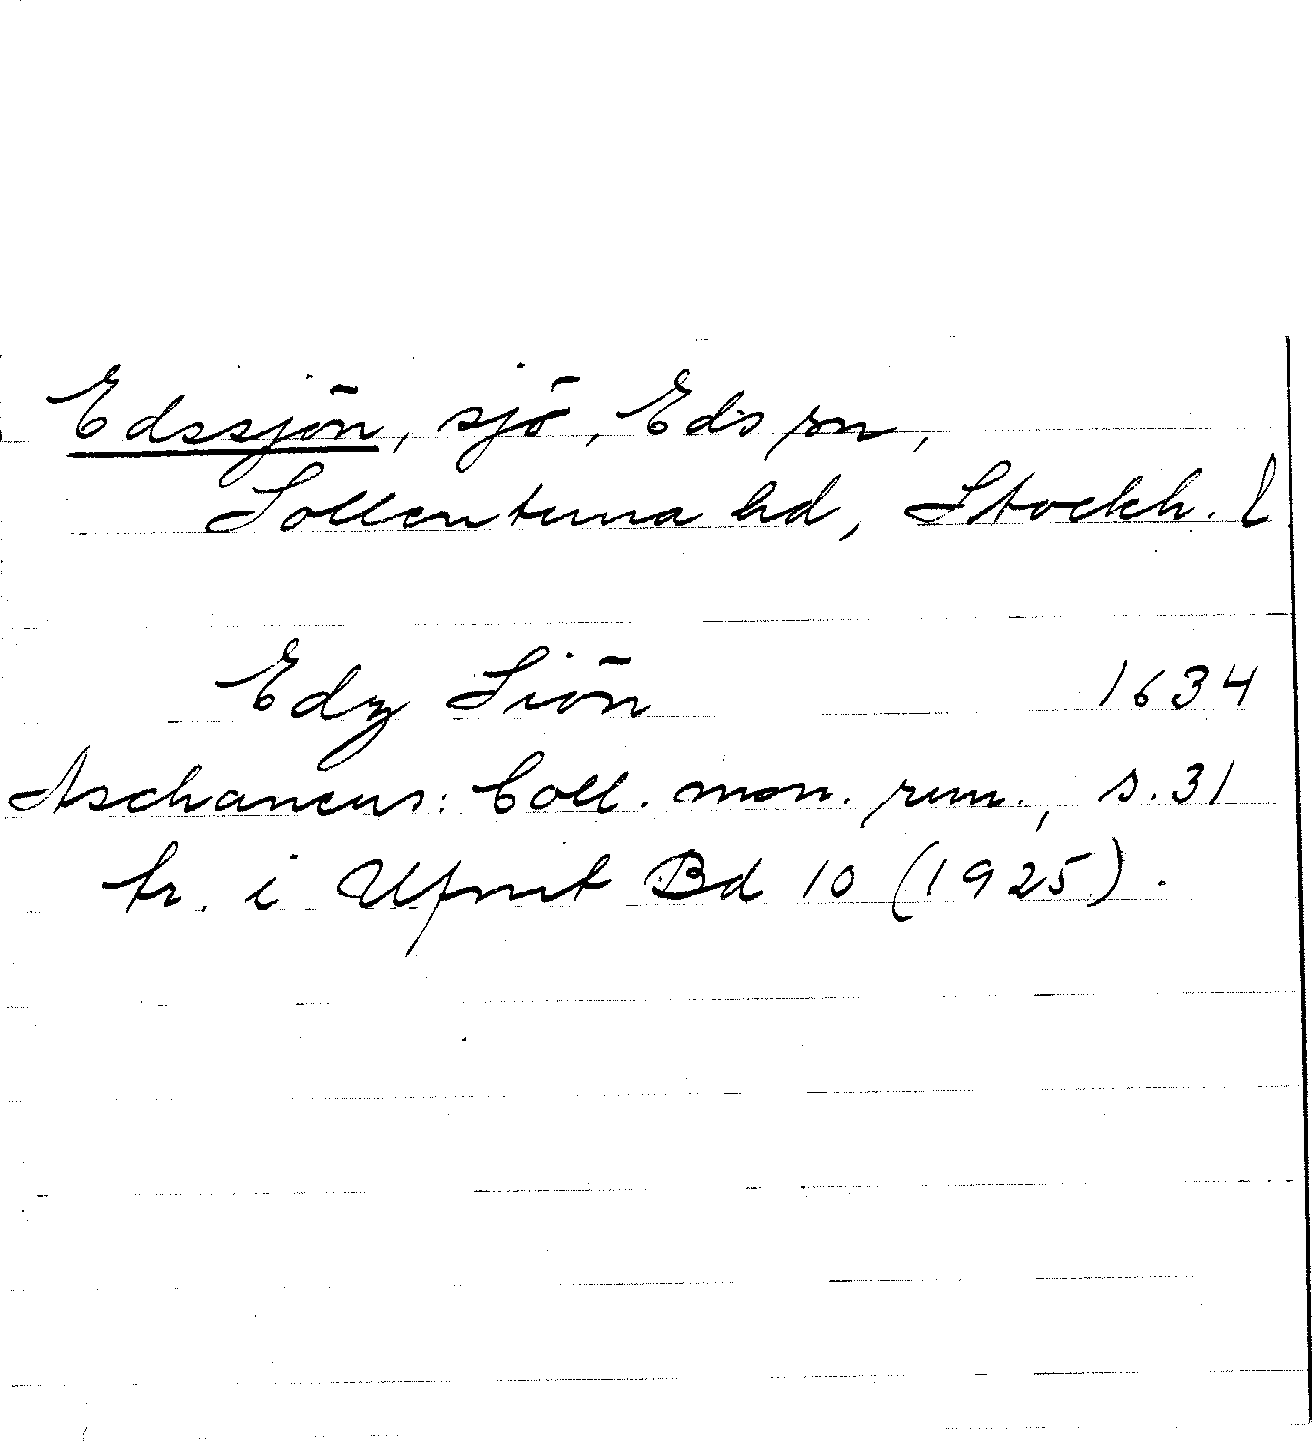 Edssjön, sjö, Eds sn,
Sollentuna hd, Stockh. l
Edz Siön 1634
Aschaneus: Coll. mon. run., s. 31
tr. i Ufmt Bd 10 (1925).